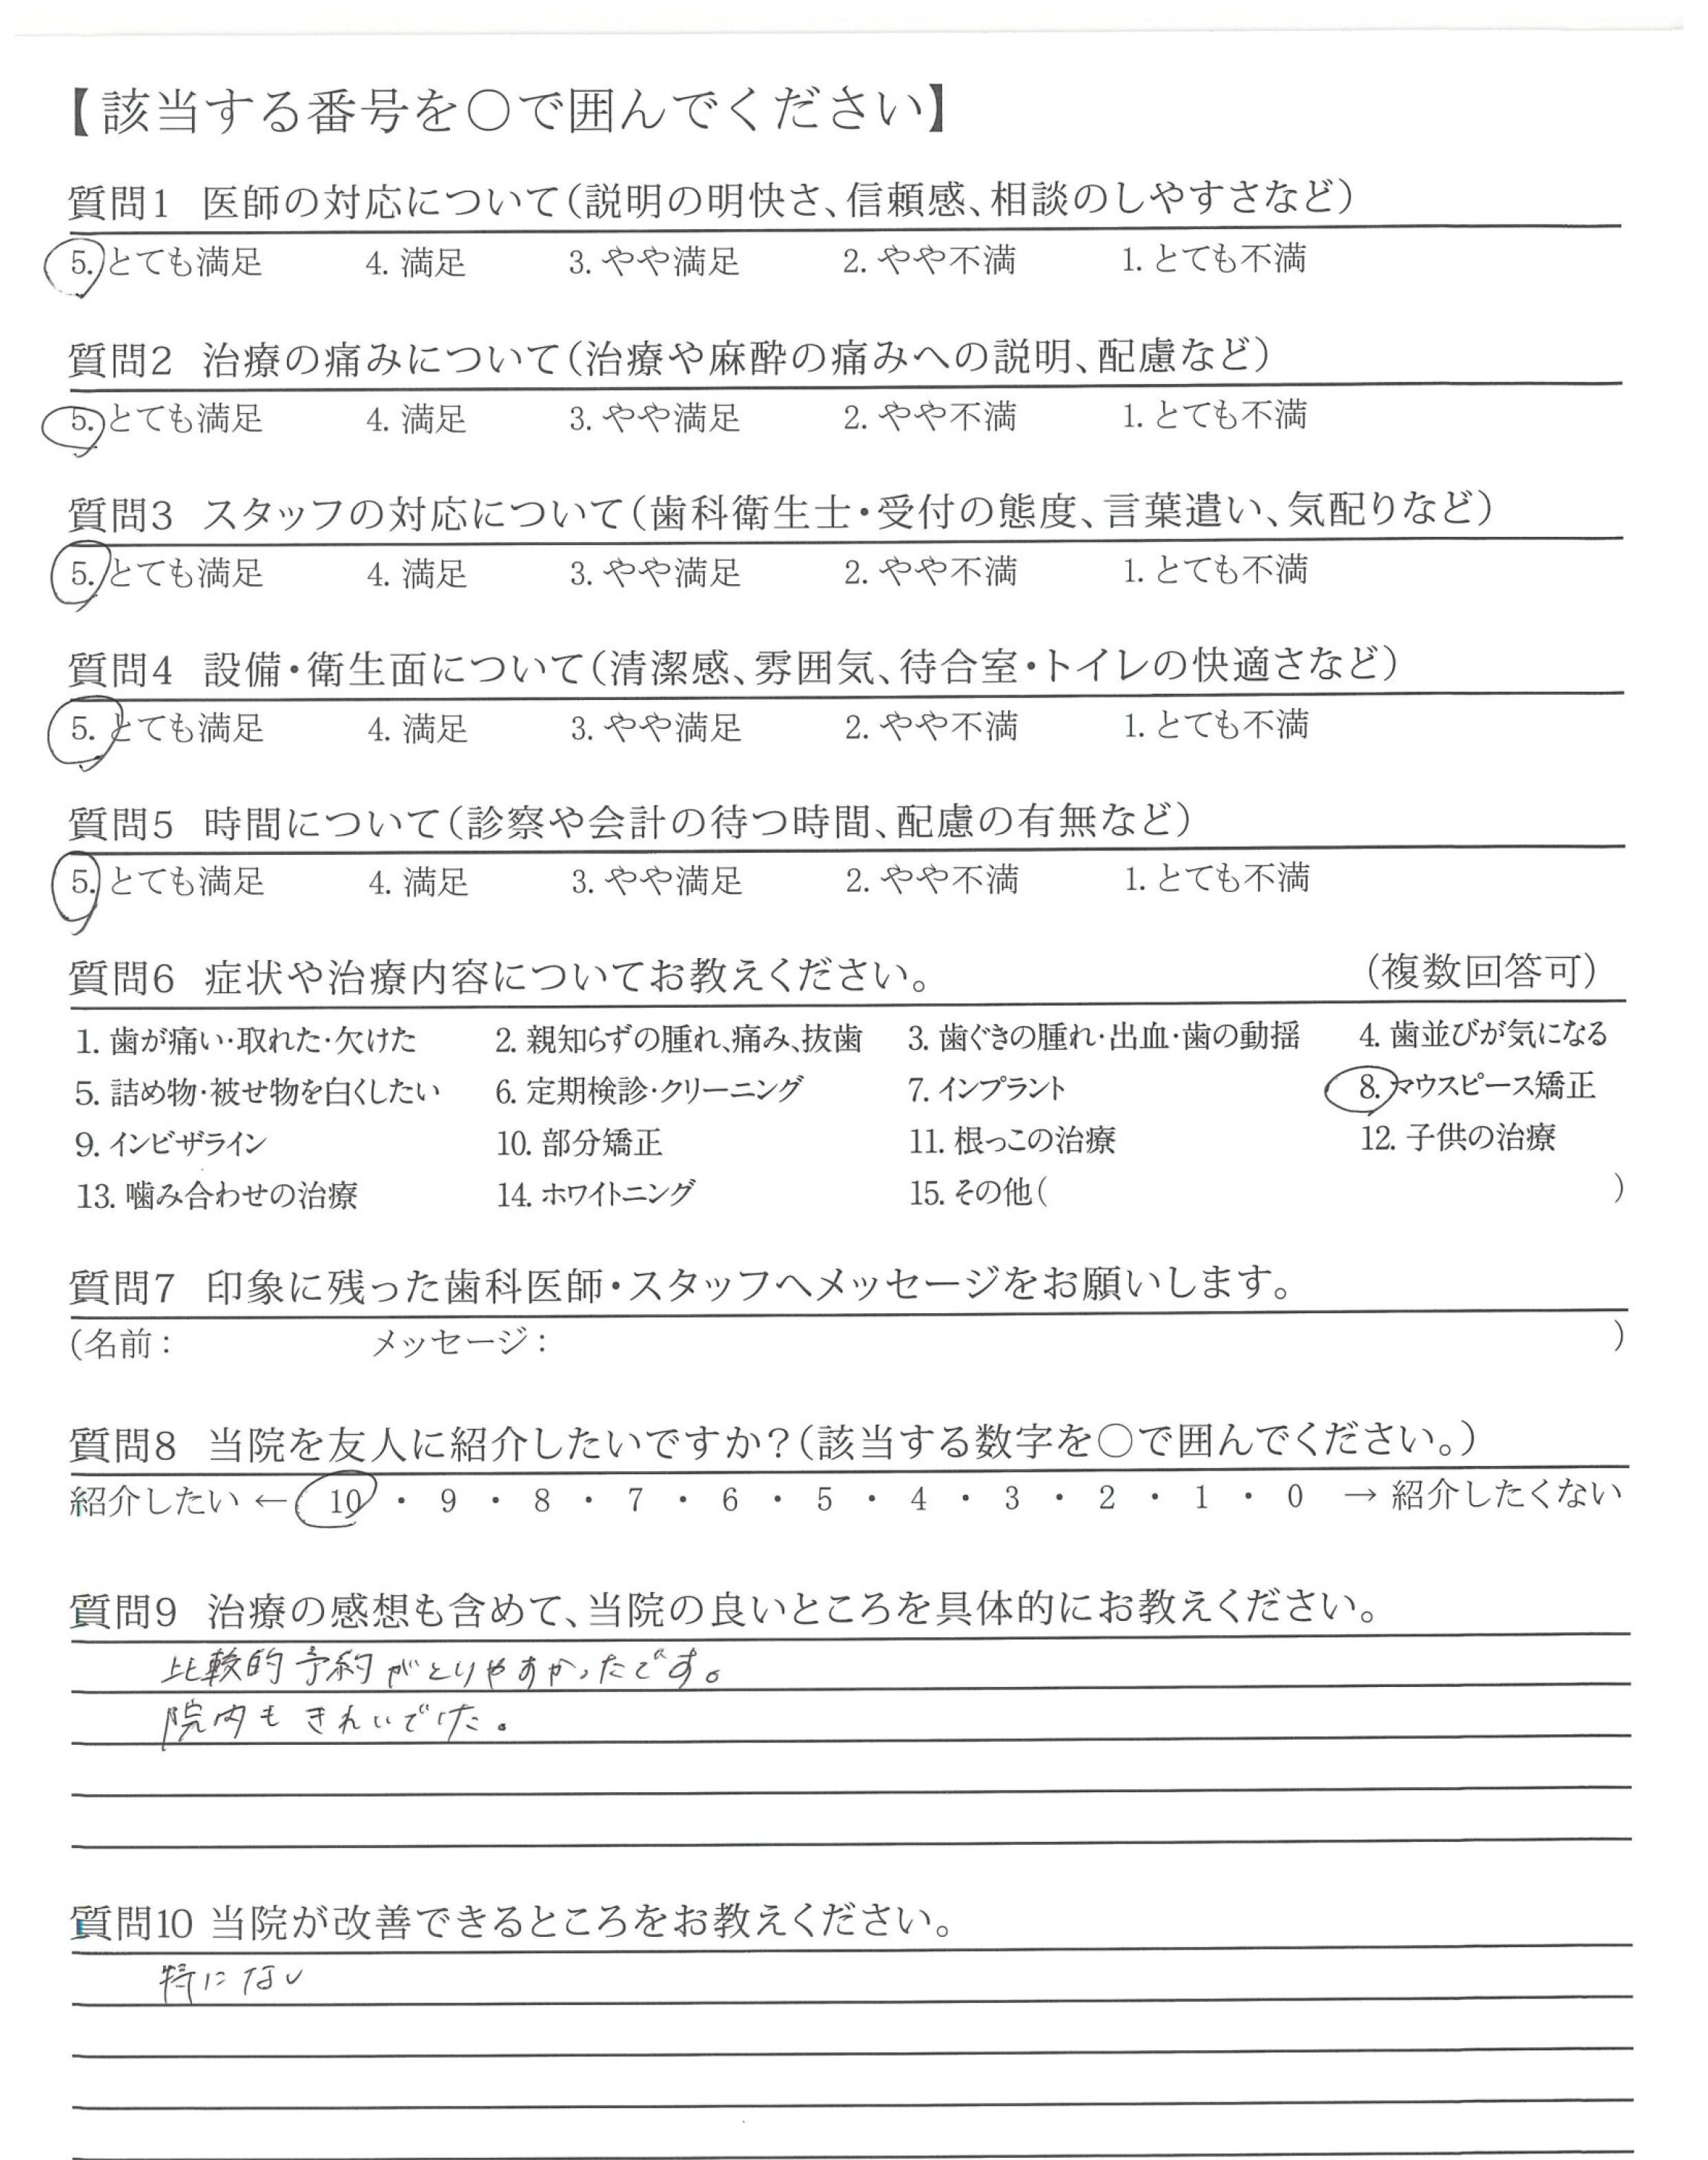 【該当する番号を○で囲んでください】
質問1 医師の対応について(説明の明快さ、信頼感、相談のしやすさなど)
5. とても満足 4. 満足 3. やや満足 2. やや不満 1. とても不満
質問2 治療の痛みについて(治療や麻酔の痛みへの説明、配慮など)
5. とても満足 4. 満足 3. やや満足 2. やや不満 1. とても不満
質問3 スタッフの対応について(歯科衛生士・受付の態度、言葉遣い、気配りなど)
5. とても満足 4. 満足 3. やや満足 2. やや不満 1. とても不満
質問4 設備・衛生面について(清潔感、雰囲気、待合室・トイレの快適さなど)
5. とても満足 4. 満足 3. やや満足 2. やや不満 1. とても不満
質問5 時間について(診察や会計の待つ時間、配慮の有無など)
5. とても満足 4. 満足 3. やや満足 2. やや不満 1. とても不満
質問6 症状や治療内容についてお教えください。 (複数回答可)
1. 歯が痛い・取れた・欠けた 2. 親知らずの腫れ、痛み、抜歯 3. 歯ぐきの腫れ・出血・歯の動揺 4. 歯並びが気になる
5. 詰め物・被せ物を白くしたい 6. 定期検診・クリーニング 7. インプラント 8. マウスピース矯正
9. インビザライン 10. 部分矯正 11. 根っこの治療 12. 子供の治療
13. 噛み合わせの治療 14. ホワイトニング 15. その他( )
質問7 印象に残った歯科医師・スタッフへメッセージをお願いします。
(名前: メッセージ: )
質問8 当院を友人に紹介したいですか?(該当する数字を○で囲んでください。)
紹介したい ← 10 ・ 9 ・ 8 ・ 7 ・ 6 ・ 5 ・ 4 ・ 3 ・ 2 ・ 1 ・ 0 → 紹介したくない
質問9 治療の感想も含めて、当院の良いところを具体的にお教えください。
比較的予約がとりやすかったです。
院内もきれいでした。
質問10 当院が改善できるところをお教えください。
特にない